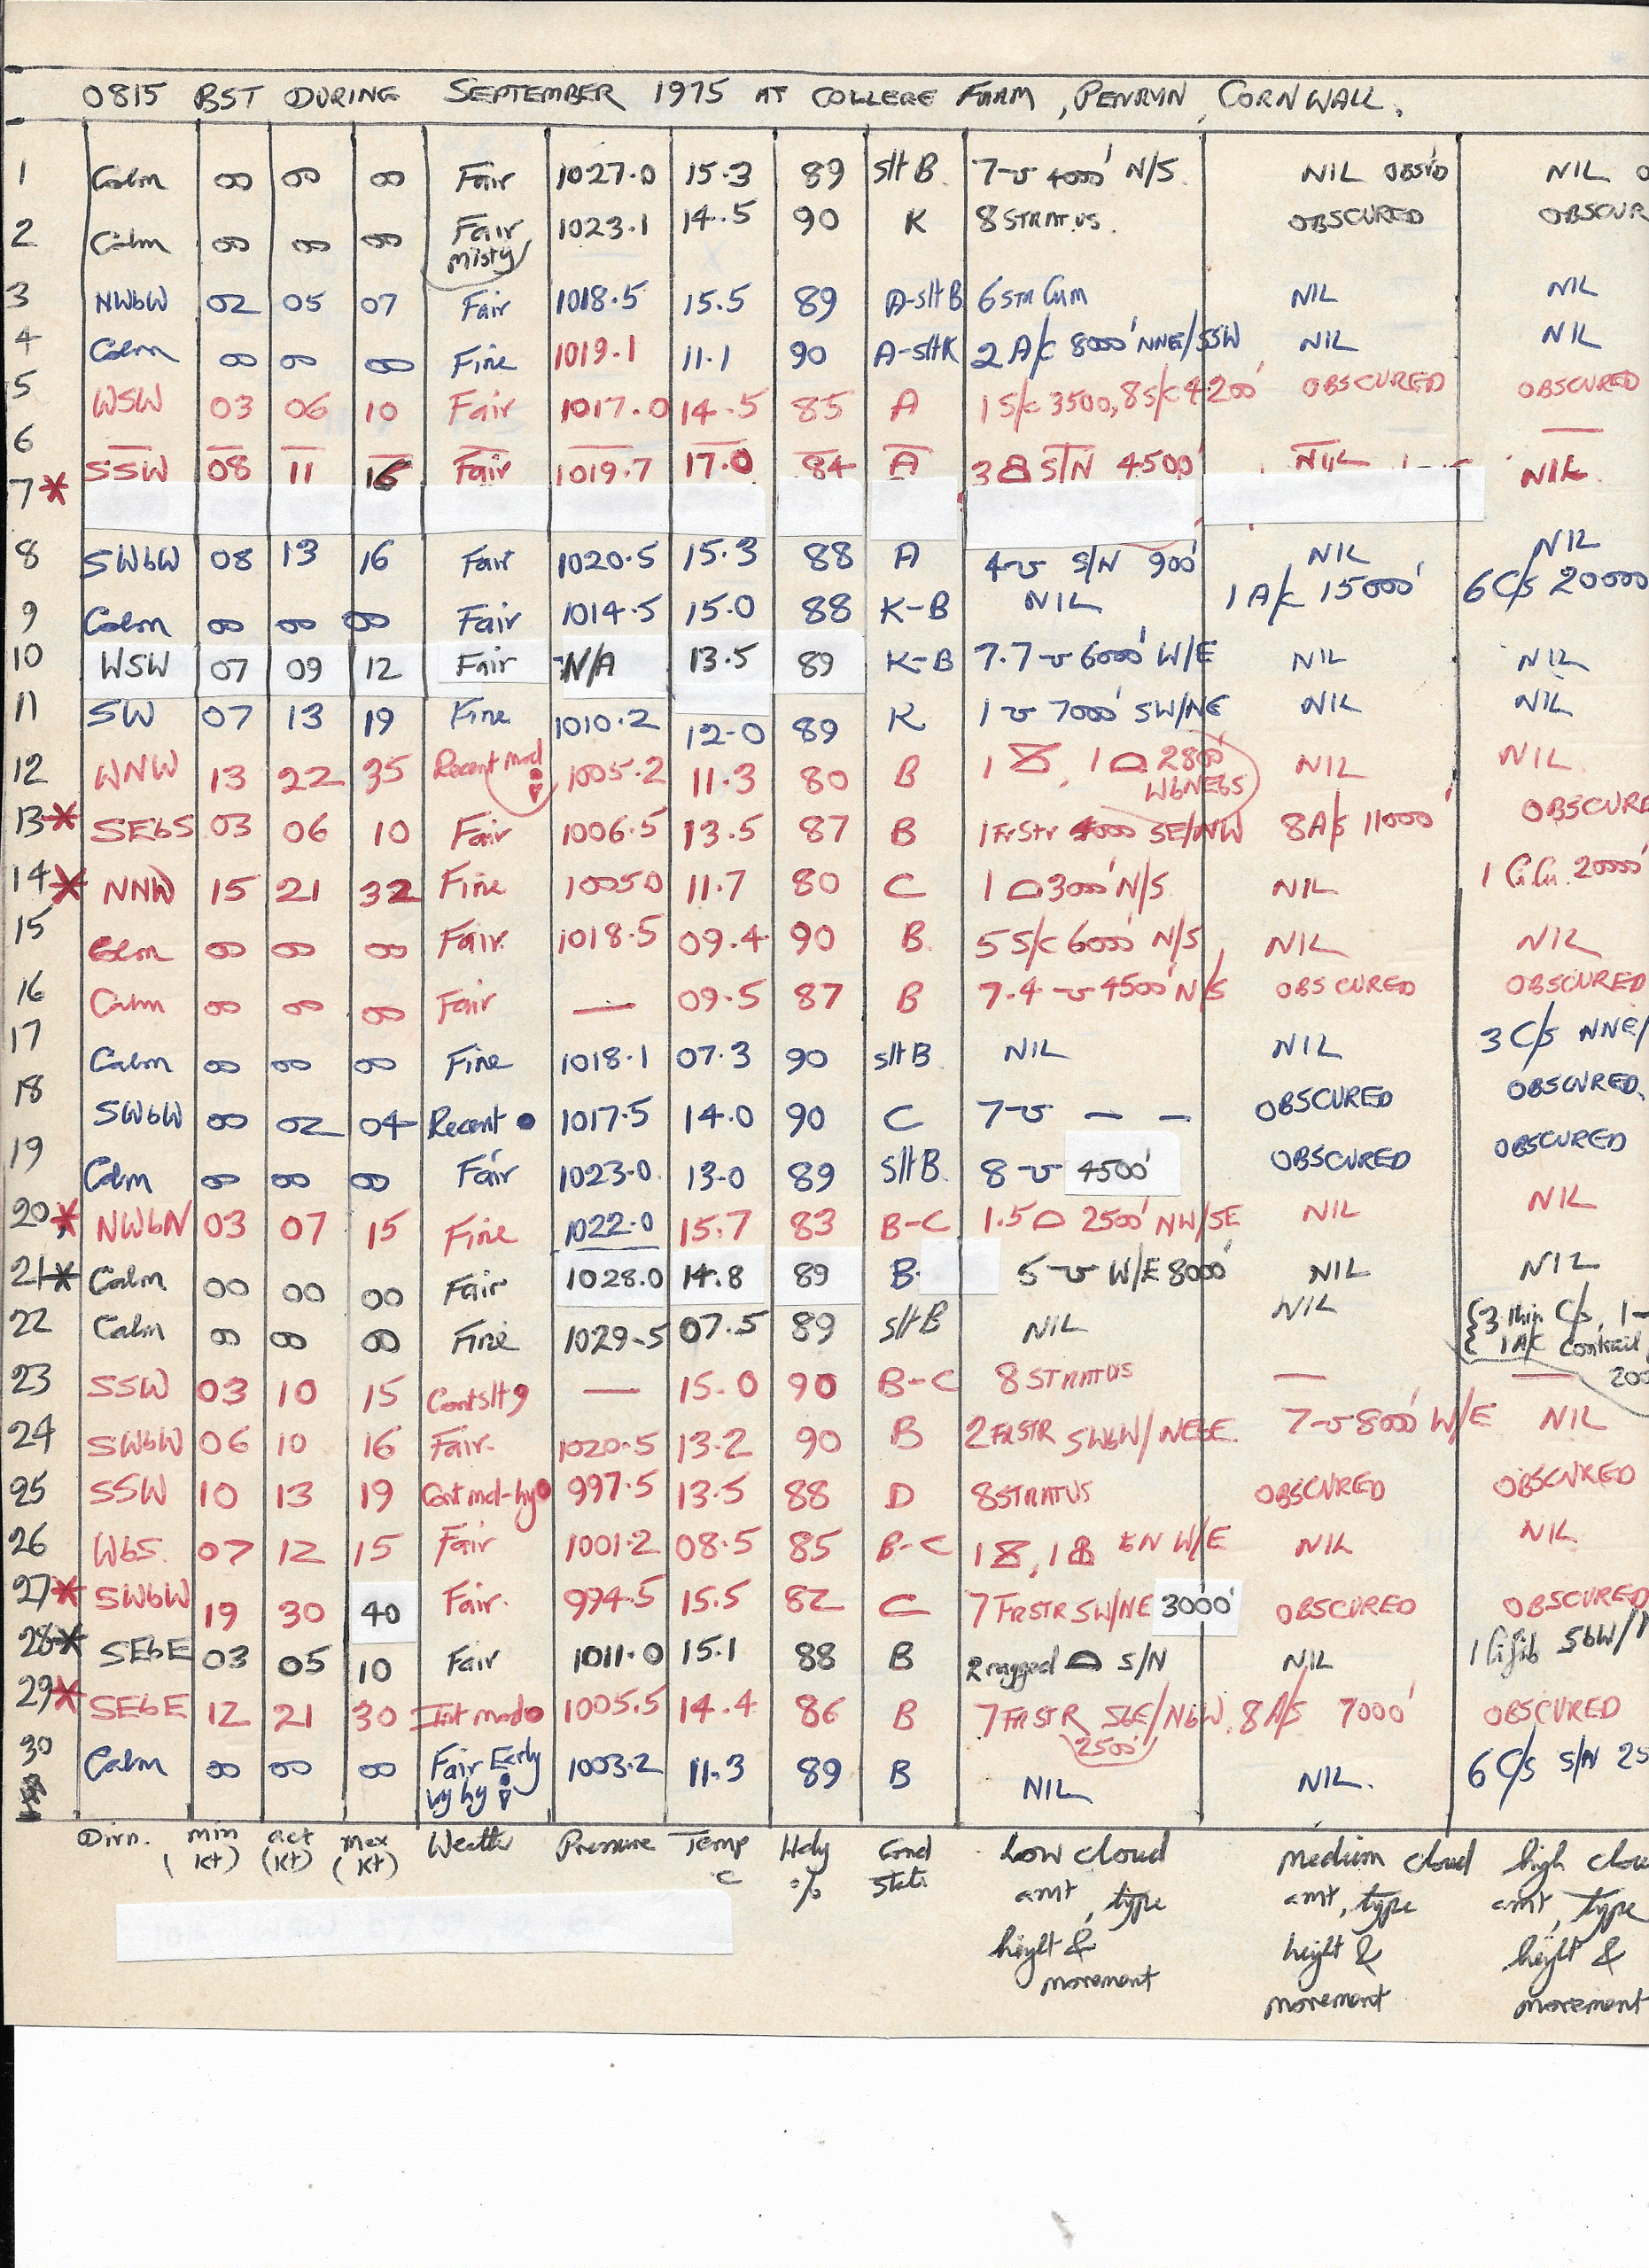 0815 BST DURING SEPTEMBER 1975 AT COLLEGE FARM, PENRYN, CORNWALL.
1 Calm 00 00 00 Fair 1027.0 15.3 89 slt B 7 4000' N/S NIL OBS'D NIL
2 Calm 00 00 00 Fair misty 1023.1 14.5 90 K 8 STRATUS. OBSCURED OBSCUR
3 NWbW 02 05 07 Fair 1018.5 15.5 89 A-slt B 6 STR Cum NIL NIL
4 Calm 00 00 00 Fine 1019.1 11.1 90 A-slt K 2 A/c 8000' NNE/SSW NIL NIL
5 WSW 03 06 10 Fair 1017.0 14.5 85 A 1 S/c 3500, 8 S/c 4200' OBSCURED OBSCURED
6 — — — — — — — — — — —
7* SSW 08 11 16 Fair 1019.7 17.0 84 A 3 S/N 4500' NIL NIL
8 SWbW 08 13 16 Fair 1020.5 15.3 88 A 4 S/N 900' NIL NIL
9 Calm 00 00 00 Fair 1014.5 15.0 88 K-B NIL 1 A/c 15000' 6 C/s 20000
10 WSW 07 09 12 Fair N/A 13.5 89 K-B 7.7 6000' W/E NIL NIL
11 SW 07 13 19 Fine 1010.2 12.0 89 K 1 7000' SW/NE NIL NIL
12 WNW 13 22 35 Recent mod 1005.2 11.3 80 B 1 , 1 2800' WbNEbS NIL NIL
13* SEbS 03 06 10 Fair 1006.5 13.5 87 B 1 FrStr 4000 SE/NW 8 A/s 11000' OBSCURE
14* NNW 15 21 32 Fine 1005.0 11.7 80 C 1 3000' N/S NIL 1 Ci.Cu. 20000'
15 Calm 00 00 00 Fair. 1018.5 09.4 90 B 5 S/c 6000' N/S NIL NIL
16 Calm 00 00 00 Fair — 09.5 87 B 7.4 4500' N/S OBSCURED OBSCURED
17 Calm 00 00 00 Fine 1018.1 07.3 90 slt B NIL NIL 3 C/s NNE/
18 SWbW 00 02 04 Recent 1017.5 14.0 90 C 7 — — OBSCURED OBSCURED.
19 Calm 00 00 00 Fair 1023.0 13.0 89 slt B 8 4500' OBSCURED OBSCURED
20* NWbN 03 07 15 Fine 1022.0 15.7 83 B-C 1.5 2500' NW/SE NIL NIL
21* Calm 00 00 00 Fair 1028.0 14.8 89 B 5 W/E 8000' NIL NIL
22 Calm 00 00 00 Fine 1029.5 07.5 89 slt B NIL NIL {3 thin C/s, 1-
1 A/C Contrail
200
23 SSW 03 10 15 Cont slt 9 — 15.0 90 B-C 8 STRATUS — —
24 SWbW 06 10 16 Fair. 1020.5 13.2 90 B 2 FRSTR SWbW/NEbE. 7 8000' W/E NIL
25 SSW 10 13 19 Cont md-hy 997.5 13.5 88 D 8 STRATUS OBSCURED OBSCURED
26 WbS. 07 12 15 Fair 1001.2 08.5 85 B-C 1 , 1 W/E NIL NIL
27* SWbW 19 30 40 Fair. 994.5 15.5 82 C 7 FRSTR SW/NE 3000' OBSCURED OBSCURED
28* SEbE 03 05 10 Fair 1011.0 15.1 88 B 2 ragged S/N NIL 1 SbW/
29* SEbE 12 21 30 Int mod 1005.5 14.4 86 B 7 FRSTR SbE/NbW. 2500' 8 A/s 7000' OBSCURED
30 Calm 00 00 00 Fair Early vy hy 1003.2 11.3 89 B NIL NIL. 6 C/s S/N 25
Dirn. min (kt) act (kt) max (kt) Weather Pressure Temp C Hdy % Grnd State low cloud amt, type height & movement medium cloud amt, type height & movement high clou amt, type height & movement